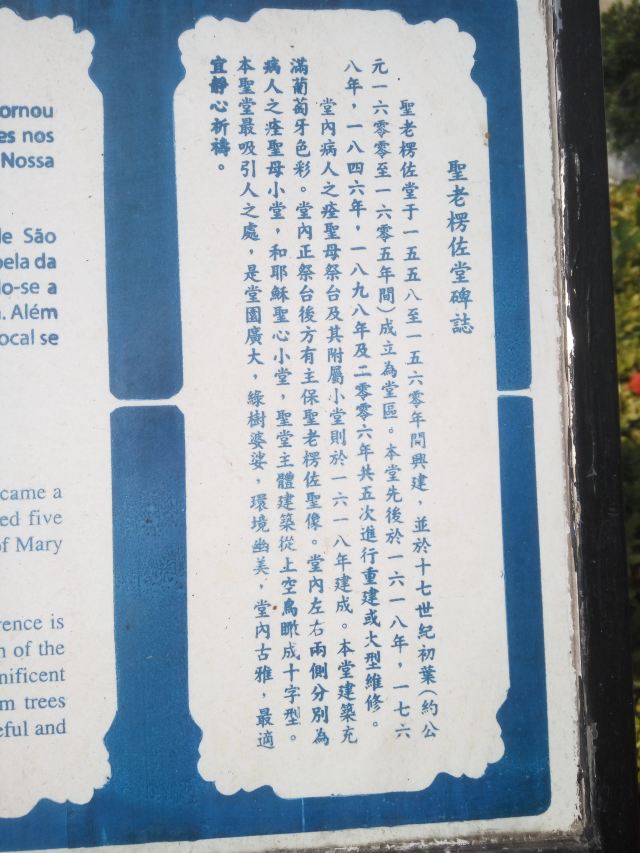 聖老楞佐堂碑誌
聖老楞佐堂于一五五八至一五六零年間興建，並於十七世紀初葉(約公
元一六零零至一六零五年間)成立為堂區。本堂先後於一六一八年，一七六
八年，一八四六年，一八九八年及二零零六年共五次進行重建或大型維修。
堂內病人之痊聖母祭台及其附屬小堂則於一六一八年建成。本堂建築充
滿葡萄牙色彩。堂內正祭台後方有主保聖老楞佐聖像。堂內左右兩側分別為
病人之痊聖母小堂，和耶穌聖心小堂，聖堂主體建築從上空鳥瞰成十字型。
本聖堂最吸引人之處，是堂園廣大，綠樹婆娑，環境幽美，堂內古雅，最適
宜靜心祈禱。
ornou
es nos
Nossa
de São
pela da
do-se a
. Além
ocal se
came a
ed five
of Mary
rence is
n of the
nificent
m trees
eful and